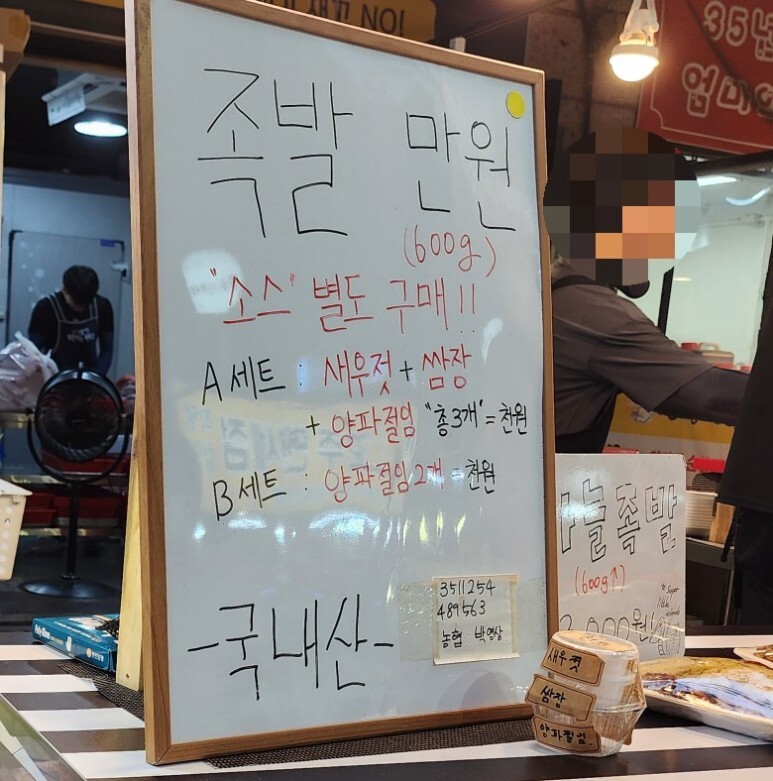 NO!
35년
족발 만원
(600g)
"소스" 별도 구매!!
A세트 : 새우젓 + 쌈장
+ 양파절임 "총3개" = 천원
B세트 : 양파절임2개 = 천원
-국내산-
3511254
489563
농협 박영상
마늘족발
(600g↑)
새우젓
쌈장
양파절임